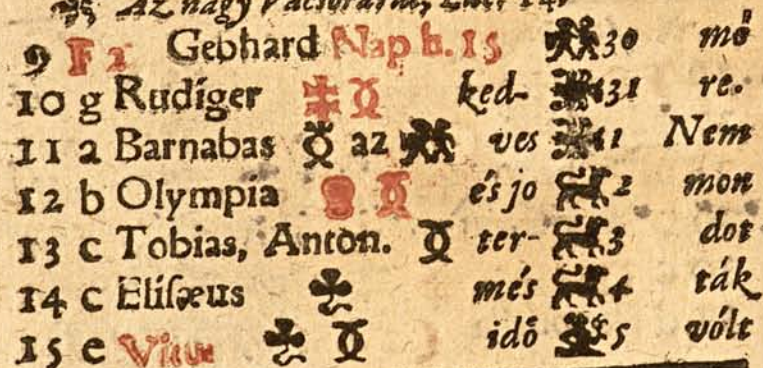 Az nagy Vacsoráról, Luc. 14.
9 F 2 Gebhard Nap h. 15 30 mő
10 g Rudiger ked- 31 re.
11 a Barnabas az ves 1 Nem
12 b Olympia és jo 2 mon
13 c Tobias, Anton. ter- 3 dot
14 c Eliſæus més 4 ták
15 e Vitus idő 5 vólt